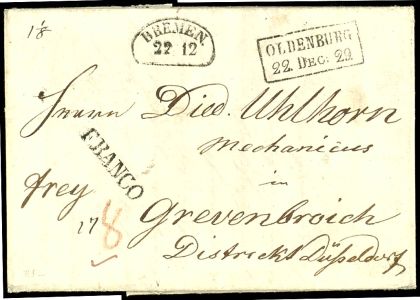 1/8
BREMEN.
22 12
OLDENBURG
22. DEC: 22
Herrn Died. Uhlhorn
Mechanicus
FRANCO
in
frey
17
8
Grevenbroich
Districkt Düsseldorf